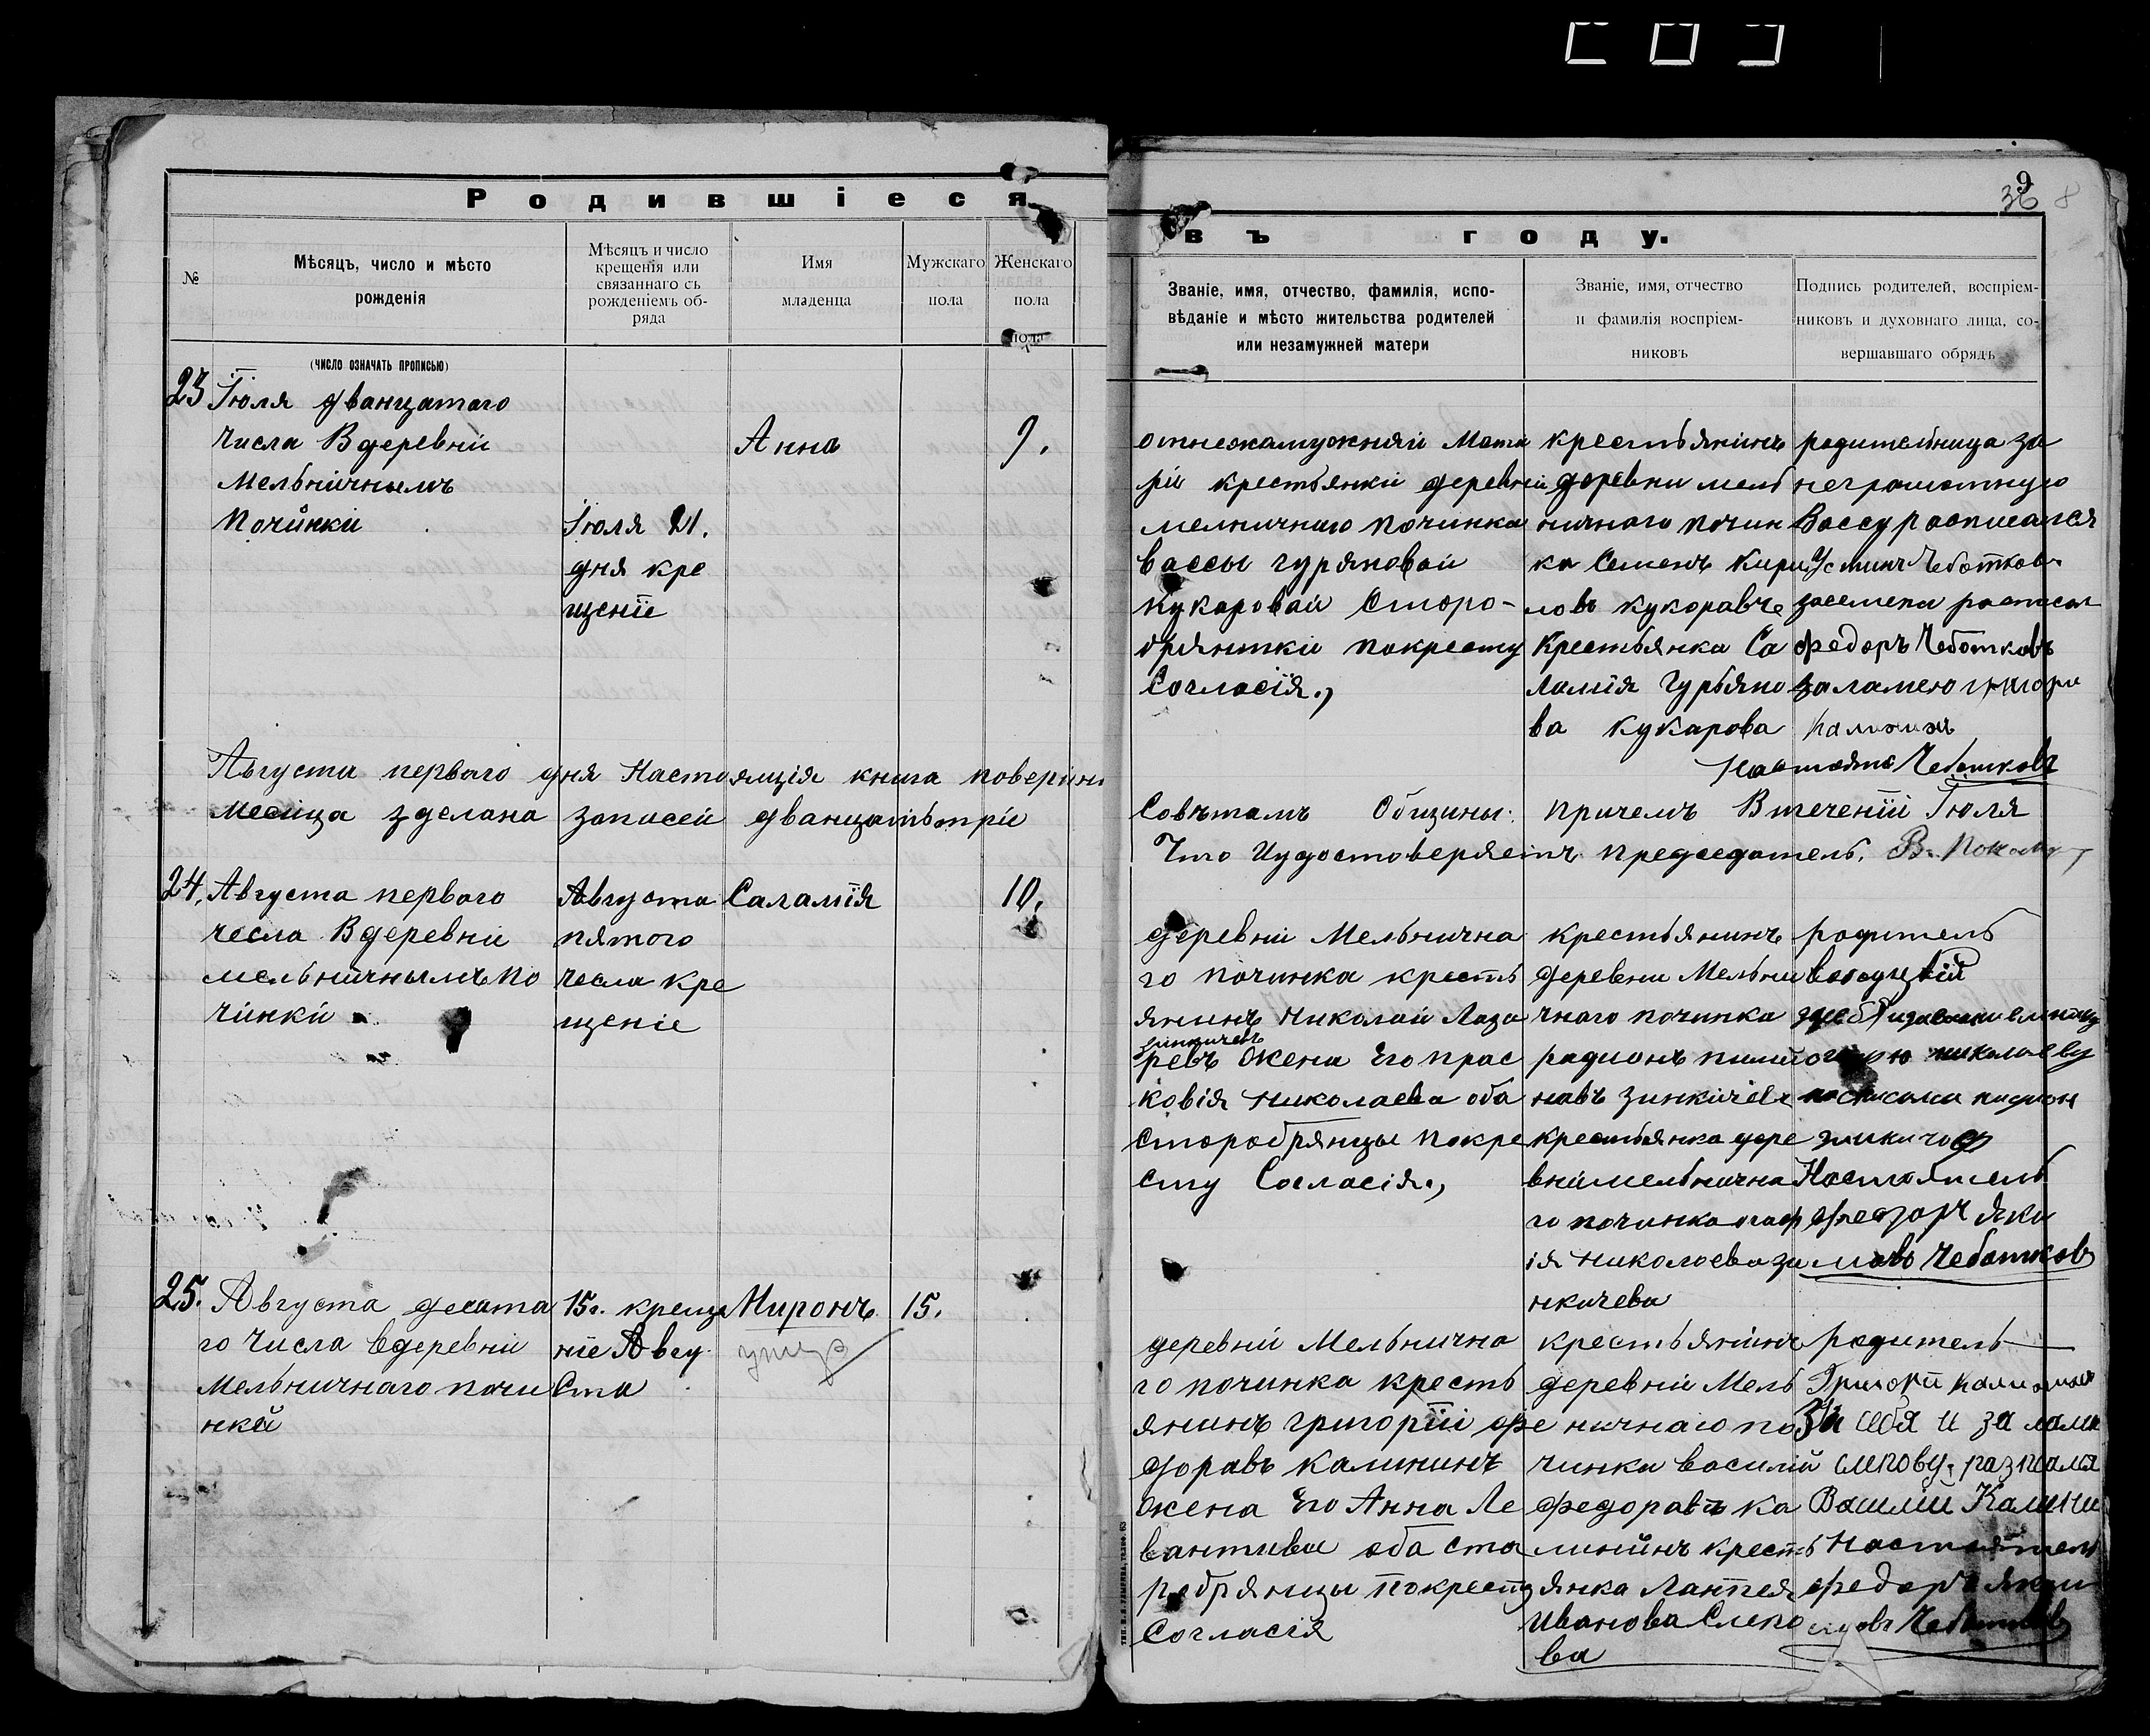 9
36 8
Родившіеся
въ году.
№
Мѣсяцъ, число и мѣсто
рожденія
Мѣсяцъ и число
крещенія или
связаннаго съ
рожденіемъ об-
ряда
Имя
младенца
Мужскаго
пола
Женскаго
пола
пола
Званіе, имя, отчество, фамилія, испо-
вѣданіе и мѣсто жительства родителей
или незамужней матери
Званіе, имя, отчество
и фамилія воспріем-
никовъ
Подпись родителей, воспріем-
никовъ и духовнаго лица, со-
вершавшаго обрядъ
(число означать прописью)
23 Іюля дванцатаго
числа Вдеревни
Мельничнымъ
Починки
Іюля 21.
дня кре
щеніе
Анна
9.
отнезамужняй Мате
ри крестьянки деревни
мелничнаго починка
вассы гуряновай
кукаровай Старо-
обрянтки покресту
Согласія.,
крестьянинъ
деревни мель
ничнаго почин
ка Семенъ Кири
ловъ кукоравъ
Крестьянка Са
ламія Гурьяно
ва кукарова
родительница за
неграмотную
Вассу росписался
Усминъ Чеботковъ
засемена росписал
федоръ Чеботковъ
заламею григори
калининъ
Чеботковъ
Августа первого дня Настоящія книга поверіна
месяца зделана записей дванцатьтри
Совѣтамъ Общины. причемъ Втеченіи Іюля
Что Иудостоверяетъ председатель.
24. Августа первого
чесла Вдеревни
мельничнымъ по
чинки
Августа
пятого
чесла кре
щеніе
Саламія
10.
деревни Мельнична
го починка кресть
янинъ Николай Лаза
зинкичевъ
ревъ жена Его прас
ковія Николаева оба
старобрянцы покре
сту Согласія.,
крестьянинъ
деревни Мельни
чнаго починка
радионъ
навъ зинкичевъ
крестьянка дере
внимельнична
го починка
ія николоева зи
нкичева
родитель
николаеву
Настоятель
федоръ яки
мовъ Чеботковъ
25. Августа десята
го Числа Вдеревни
Мельничнаго почи
нкй
15г. креще
ніе Авгу
ста
Миронъ
15.
деревни Мельнична
го починка кресть
янинъ григорій фе
доравъ калининъ
жена Его Анна Ле
вантива оба ста
робрянцы покресту
Согласія
крестьянинъ
деревни Мель
ничнаго по
чинка василий
федоравъ ка
линйнъ кресть
янка
Иванова Слепо
ва
родитель
Григорй калининъ
За себя и за
слепову.
Василий Калини
Настоятель
федоръ яки
мовъ Чеботковъ